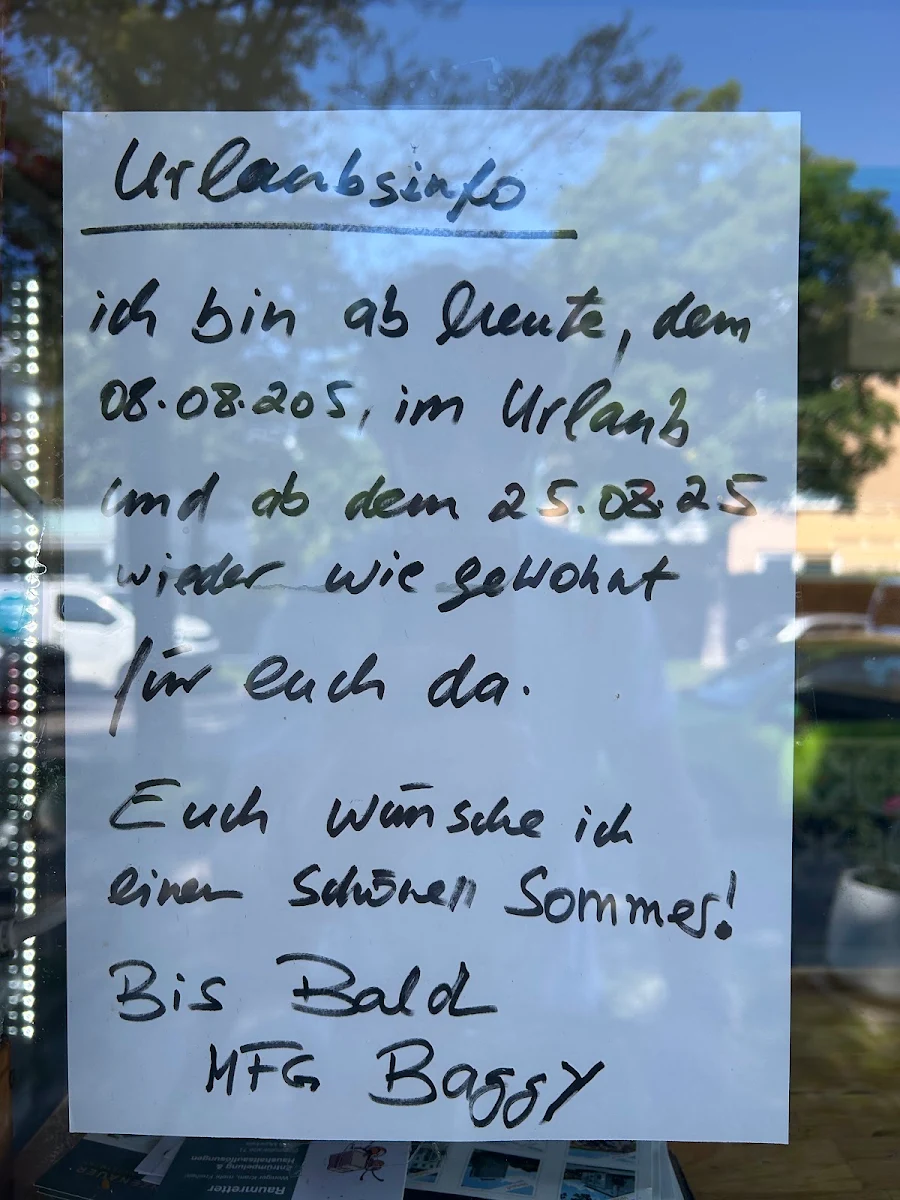 Urlaubsinfo
ich bin ab heute, dem
08.08.205, im Urlaub
und ab dem 25.08.25
wieder wie gewohnt
für euch da.
Euch wünsche ich
einen schönen Sommer!
Bis Bald
MFG Baggy
Raumretter
Entrümpelung &
Haushaltsauflösungen